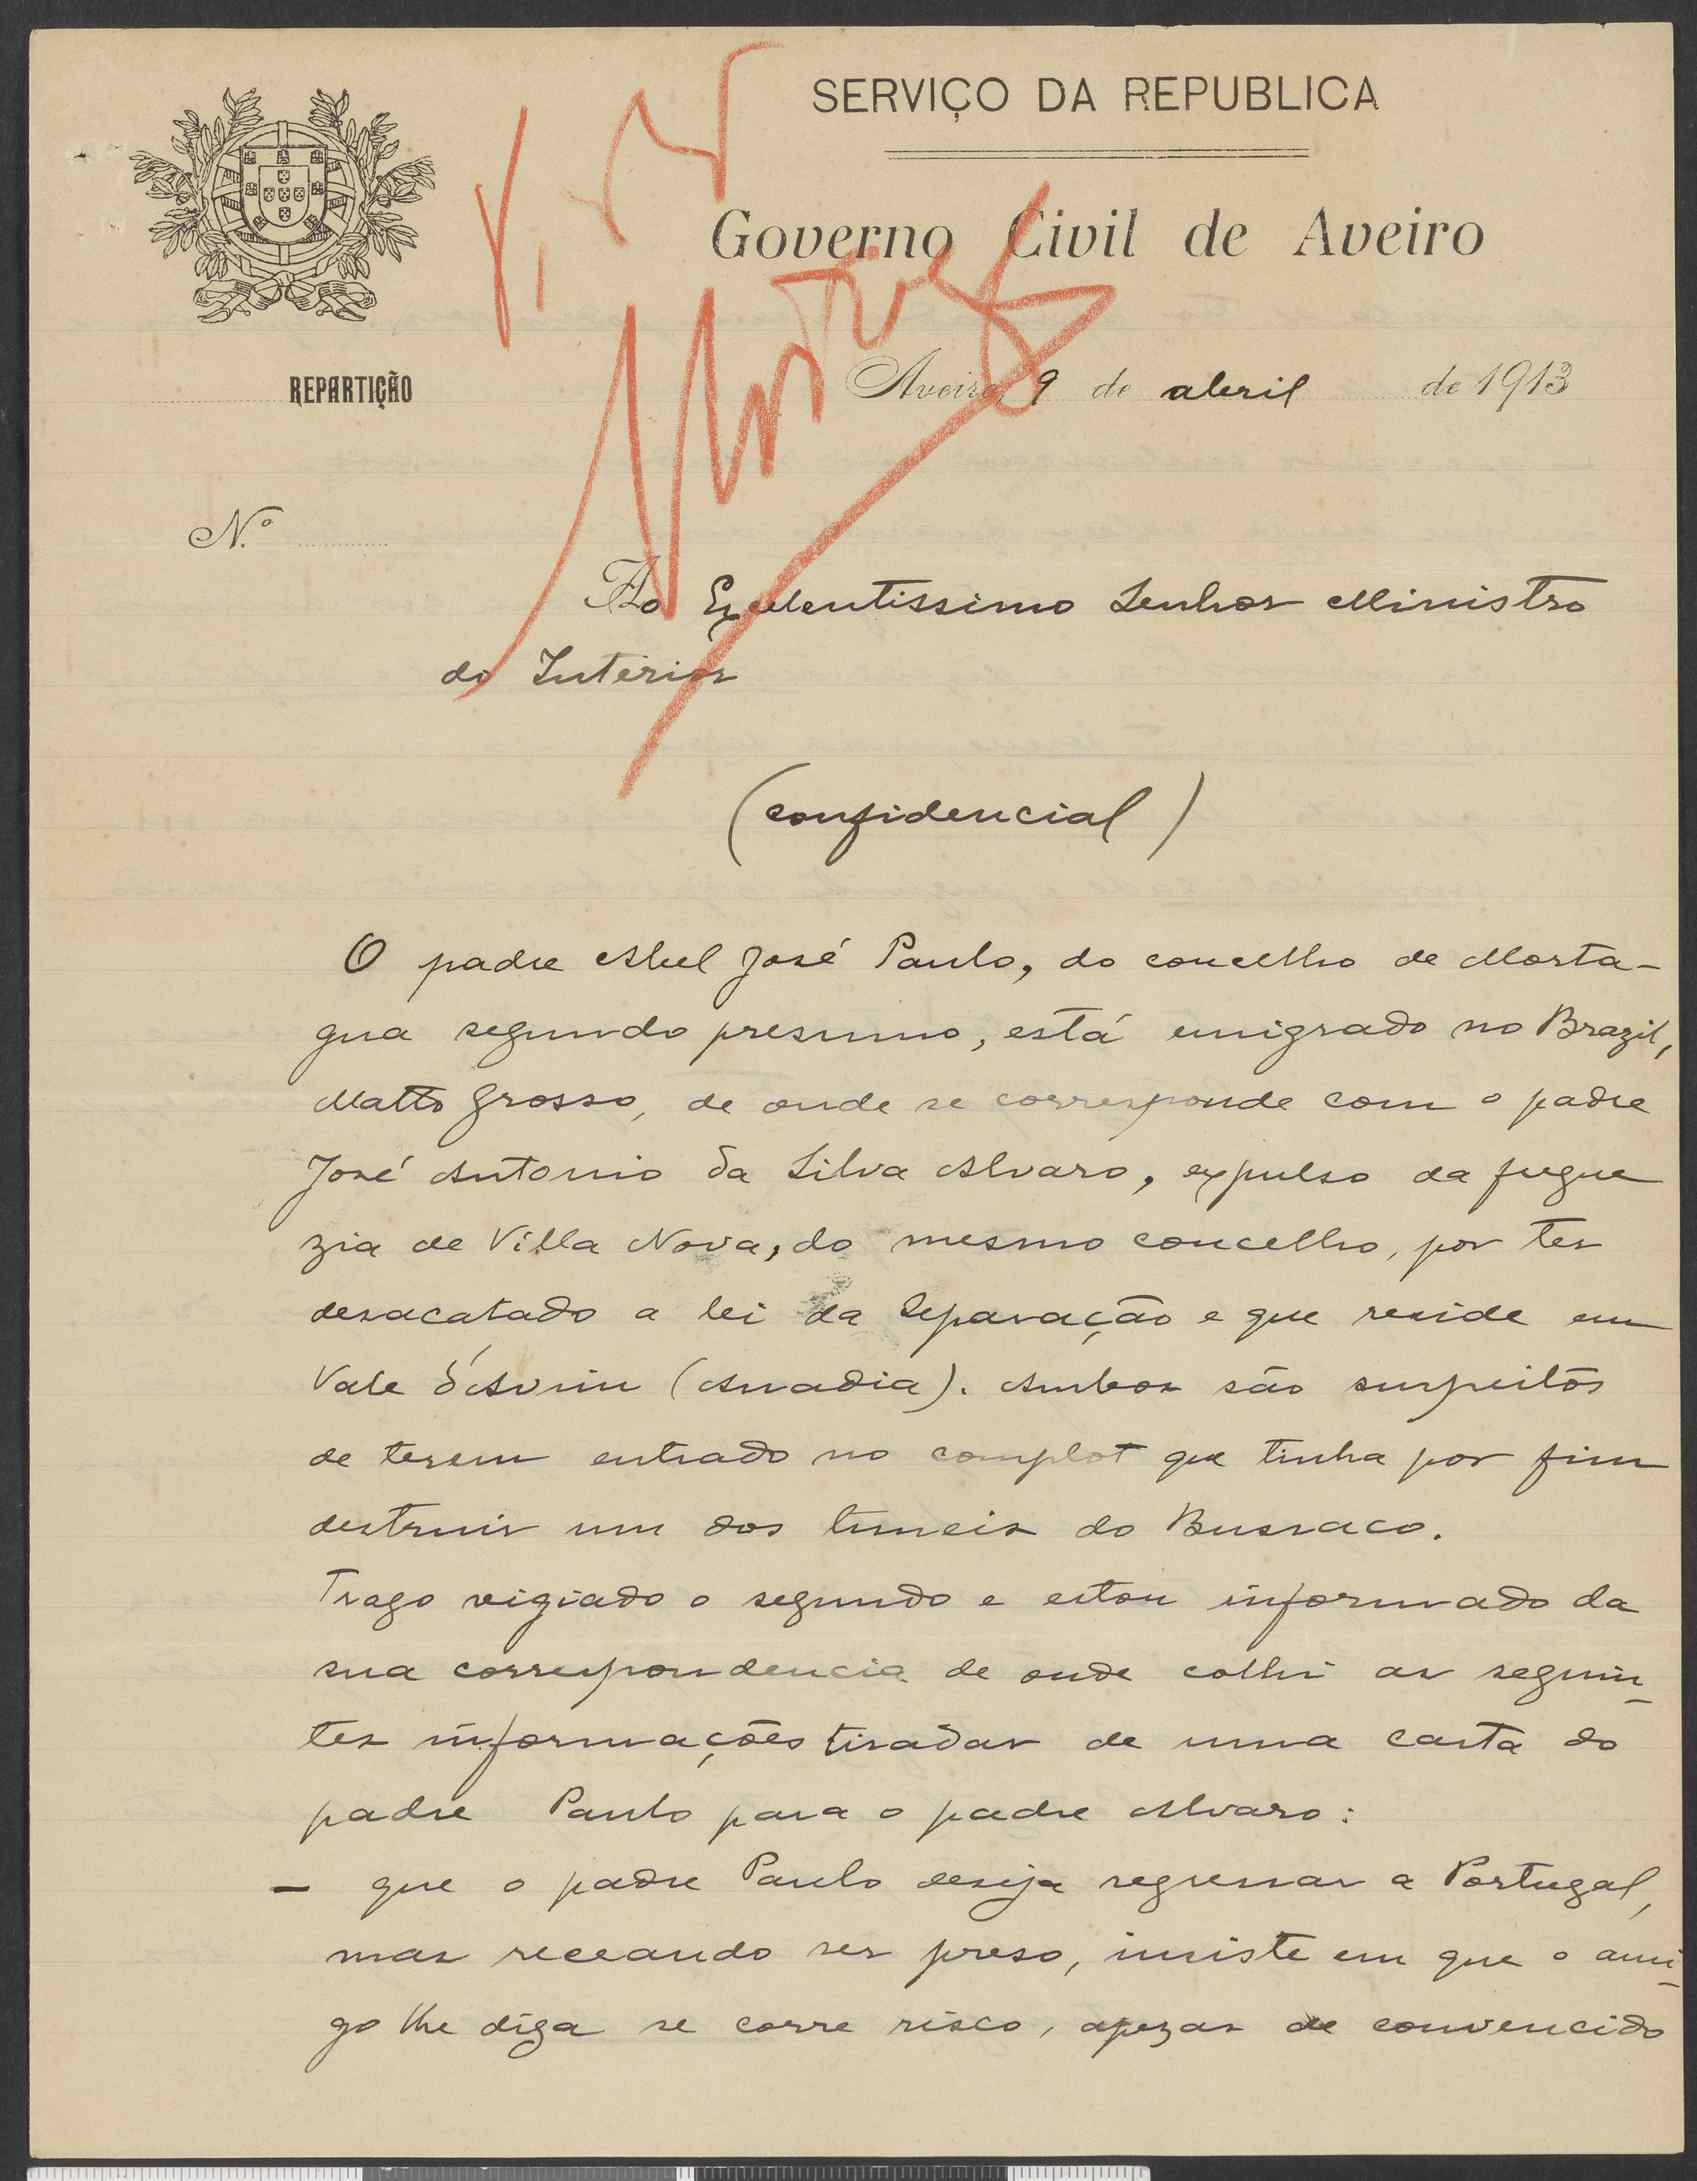 SERVIÇO DA REPUBLICA
Governo Civil de Aveiro
REPARTIÇÃO
Aveiro, 9 de abril de 1913
N.º
Ao Excelentissimo Senhor Ministro
do Interior
(confidencial)
O padre Abel José Paulo, do concelho de Morta-
gua segundo presumo, está emigrado no Brazil,
Matto Grosso, de onde se corresponde com o padre
José Antonio da Silva Alvaro, expulso da fregue
zia de Villa Nova, do mesmo concelho, por ter
desacatado a lei da Separação e que reside em
Vale d'Avim (Anadia). Ambos são suspeitos
de terem entrado no complot que tinha por fim
destruir um dos tuneis do Bussaco.
Trago vigiado o segundo e estou informado da
sua correspondencia de onde colhi as seguin-
tes informações tiradas de uma carta do
padre Paulo para o padre Alvaro:
- que o padre Paulo deseja regressar a Portugal,
mas receando ser preso, insiste em que o ami-
go lhe diga se corre risco, apezar de convencido